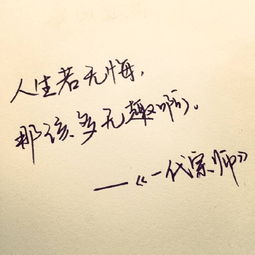 人生若无悔，
那该多无趣啊。
——《一代宗师》